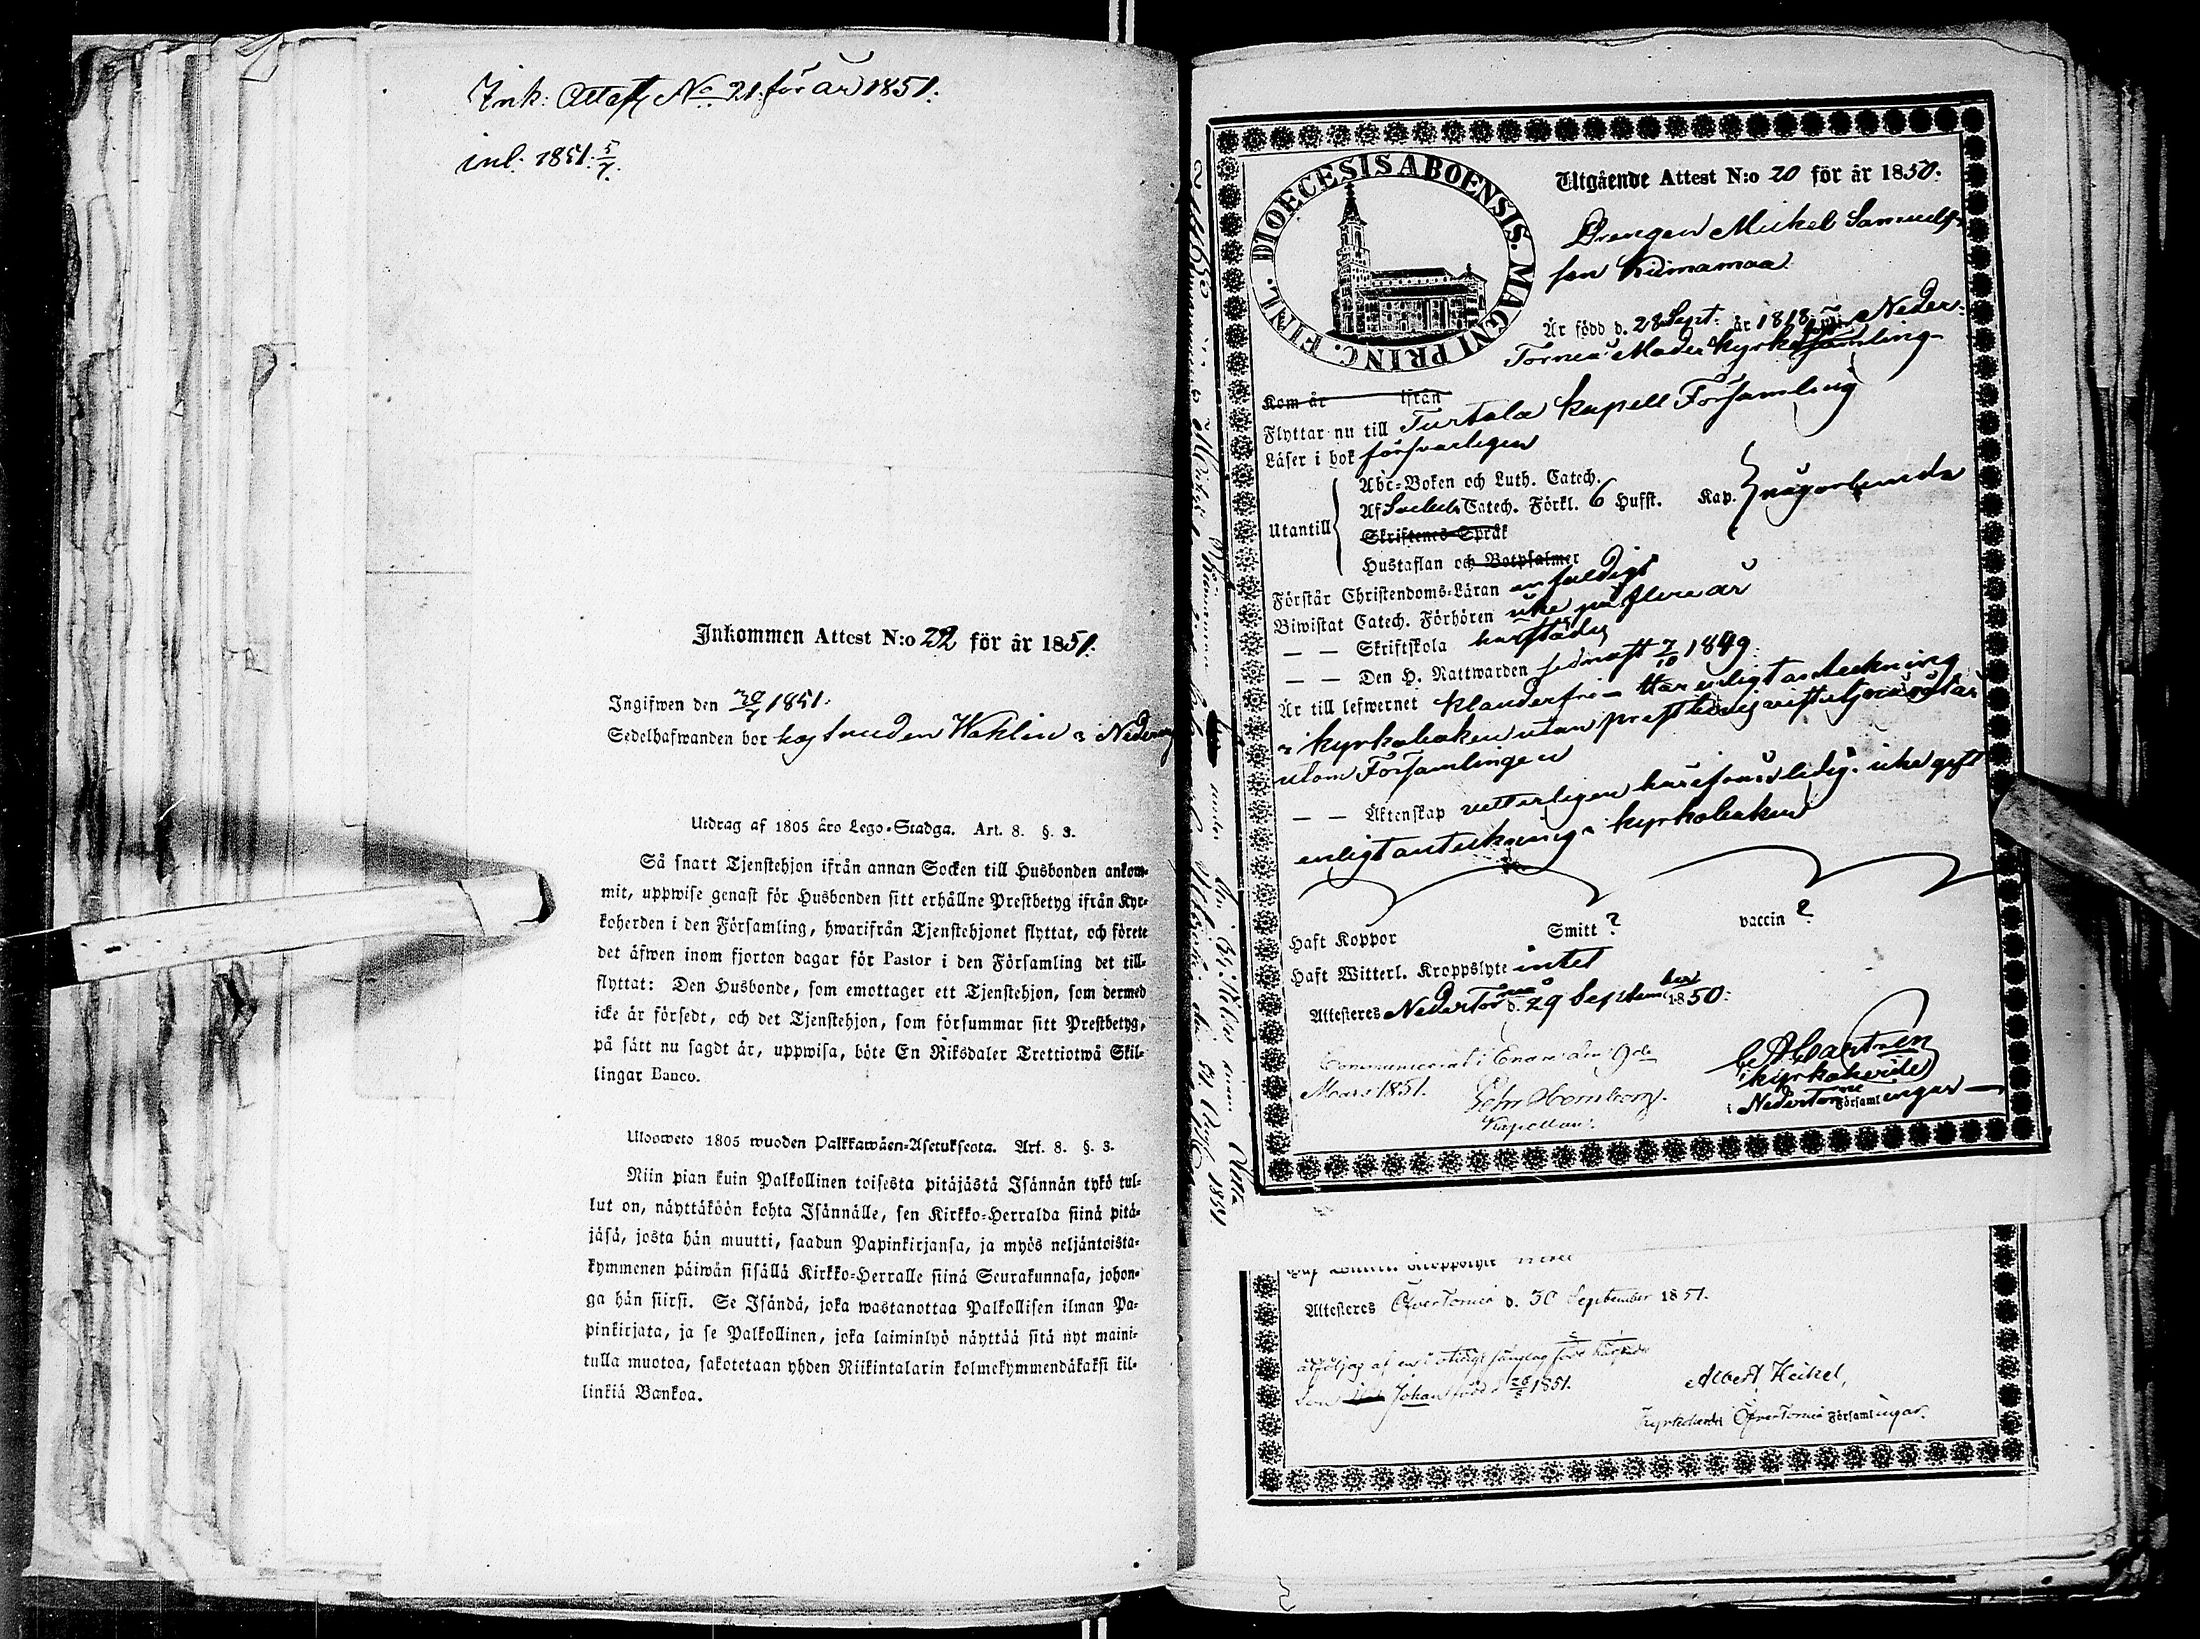 Ink: Attest No 21. för år 1851.
inl. 1851. 5/7.
Inkommen Attest N:o 22 för år 1851.
Ingifwen den 30/7 1851.
Sedelhafwanden bor hos
Utdrag af 1805 års Lego-Stadga. Art. 8. §. 3.
Så snart Tjenstehjon ifrån annan Socken till Husbonden ankom-
mit, uppwise genast för Husbonden sitt erhållne Prestbetyg ifrån Kyr-
koherden i den Församling, hwarifrån Tjenstehjonet flyttat, och förete
det äfwen inom fjorton dagar för Pastor i den Församling det till-
flyttat: Den Husbonde, som emottager ett Tjenstehjon, som dermed
icke är försedt, och det Tjenstehjon, som försummar sitt Prestbetyg,
på sätt nu sagdt är, uppwisa, böte En Riksdaler Trettiotwå Skil-
lingar Banco.
Uloosweto 1805 wuoden Palkkawäen-Asetuksesta. Art. 8. §. 3.
Niin pian kuin Palkollinen toisesta pitäjästä Isännän tykö tul-
lut on, näyttäköön kohta Isännälle, sen Kirkko-Herralda siinä pitä-
jäsä, josta hän muutti, saadun Papinkirjansa, ja myös neljäntoista-
kymmenen päiwän sisällä Kirkko-Herralle siinä Seurakunnasa, johon-
ga hän siirsi. Se Isändä, joka wastanottaa Palkollisen ilman Pa-
pinkirjata, ja se Palkollinen, joka laiminlyö näyttää sitä nyt maini-
tulla muotoa, sakotetaan yhden Riikintalarin kolmekymmendäkaksi kil-
linkiä Bankoa.
DIOECESIS ABOENSIS. MAGNI PRINC. FINL.
Utgående Attest N:o 20 för år 1850.
Drengen Mickel Samuels-
son Kiimamaa
Är född d. 28 Sept: år 1818 Neder-
Torneå Moder kyrko församling
Kom år ifrån
Flyttar nu till Turtola kapell Församling
Läser i bok försvarligen
Utantill
Abc-Boken och Luth. Catech.
Af Svebelii Catech. Förkl. 6 Hufst. Kap. någorlunda
Skriftenes Språk
Hustaflan och Botpsalmer
Förstår Christendoms-Läran enfaldigt
Biwistat Catech. Förhören icke på flere år
— — Skriftskola
— — Den H. Nattwarden sednast 7/10 1849.
Är till lefwernet klanderfri — Har enligt anteckning
i kyrkoboken utan prestbetyg
utom Församlingen
— — Äktenskap vetterligen ledig. icke gift
enligt anteckning i kyrkoboken
Haft Koppor Smitt ? vaccin ?
Haft Witterl. Kroppslyte intet
Attesteres NederTorneå d. 29 September 1850.
Communicerat i Enare den 9de
Mars 1851.
Kapellan.
Kyrkoherde
i NederTorne Församlingar
Attesteres ÖfverTorneå d. 30 September 1851.
Johan född d 1851.
Albert Heikel,
Kyrkoherde i ÖfverTorneå Församlingar.